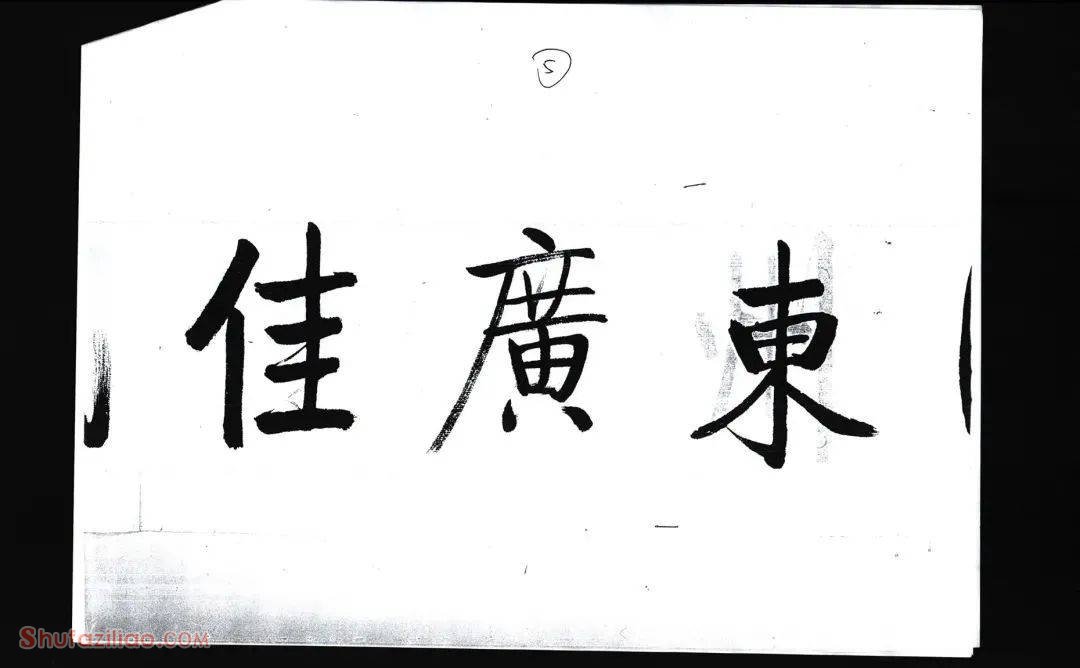 5
佳廣東
Shufaziliao.com